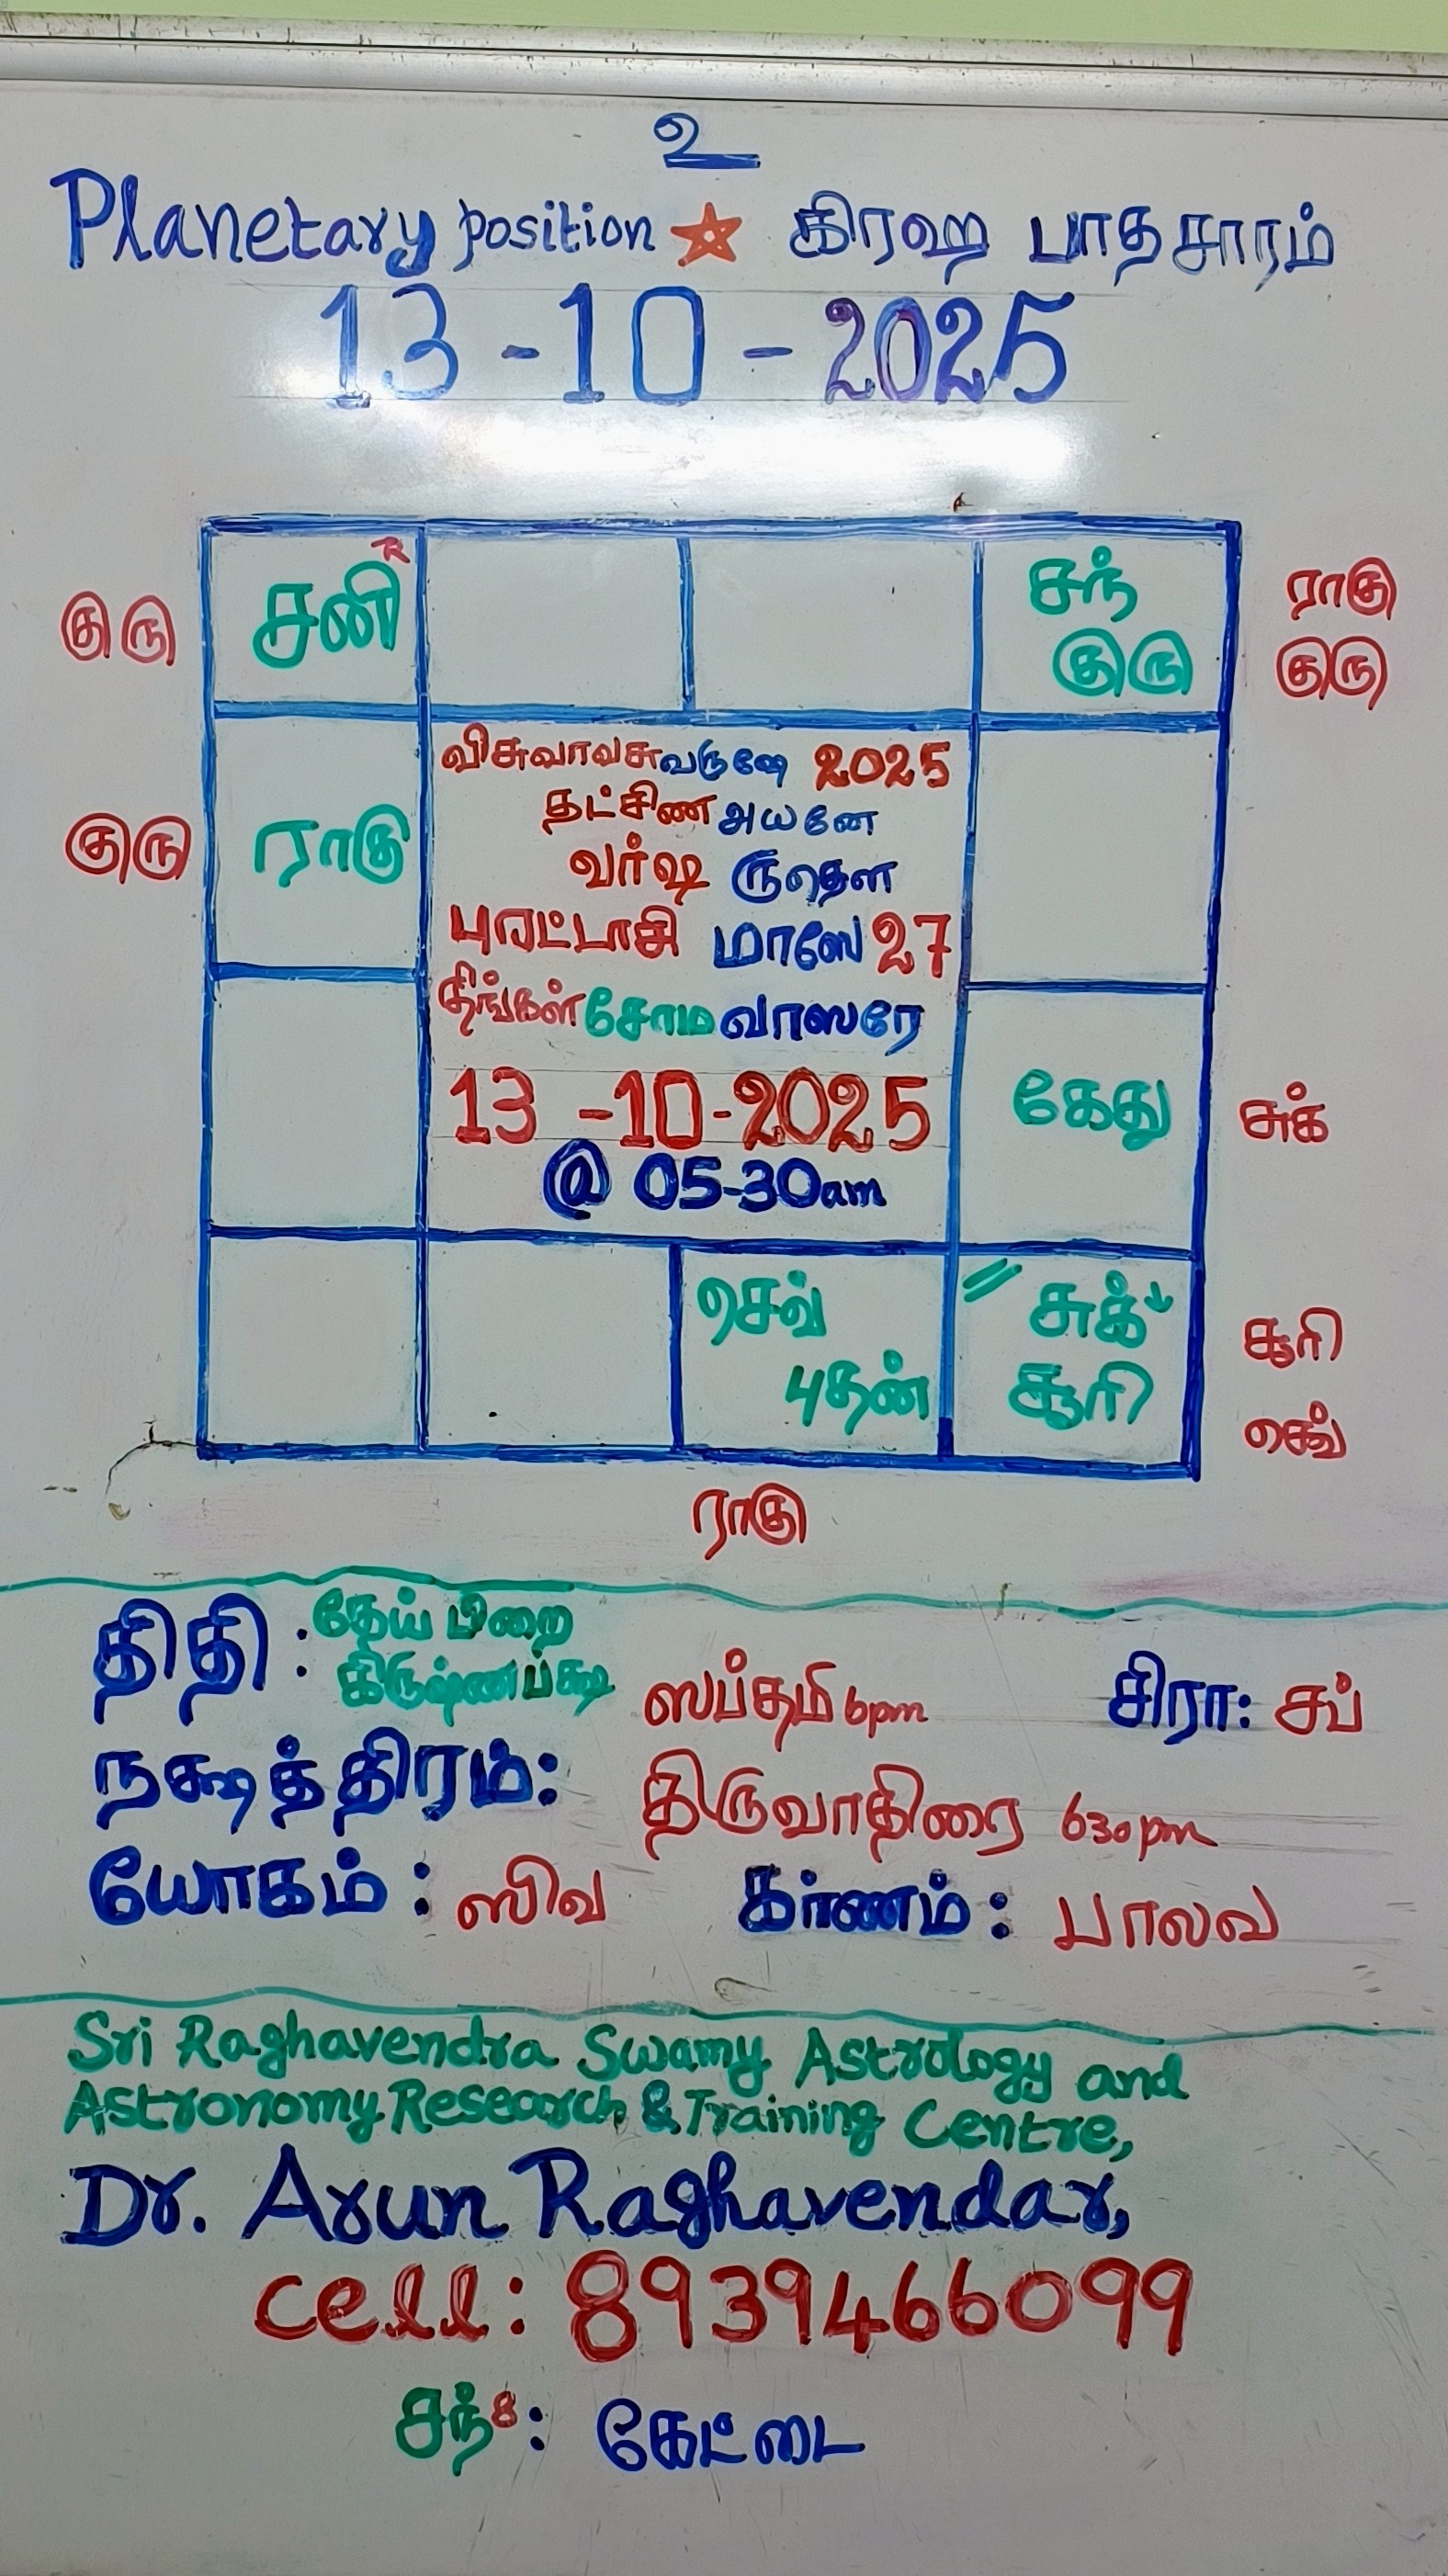 உ
Planetary position ☆ கிரஹ பாதசாரம்
13-10-2025
குரு சனி R சந் ராகு
குரு குரு
விசுவாவசு வருஷே 2025
தட்சிண அயனே
வர்ஷ ருதௌ
குரு ராகு
புரட்டாசி மாஸே 27
திங்கள் சோம வாஸரே
13-10-2025
கேது சுக்
@ 05-30am
செவ் // சுக்↓ சூரி
புதன் சூரி செவ்
ராகு
திதி : தேய் பிறை
கிருஷ்ணபக்ஷ ஸப்தமி 6pm சிரா: சப்
நக்ஷத்திரம்: திருவாதிரை 630pm
யோகம் : ஸிவ கர்ணம் : பாலவ
Sri Raghavendra Swamy Astrology and
Astronomy Research & Training Centre,
Dr. Arun Raghavendar,
cell: 8939466099
சந்8: கேட்டை